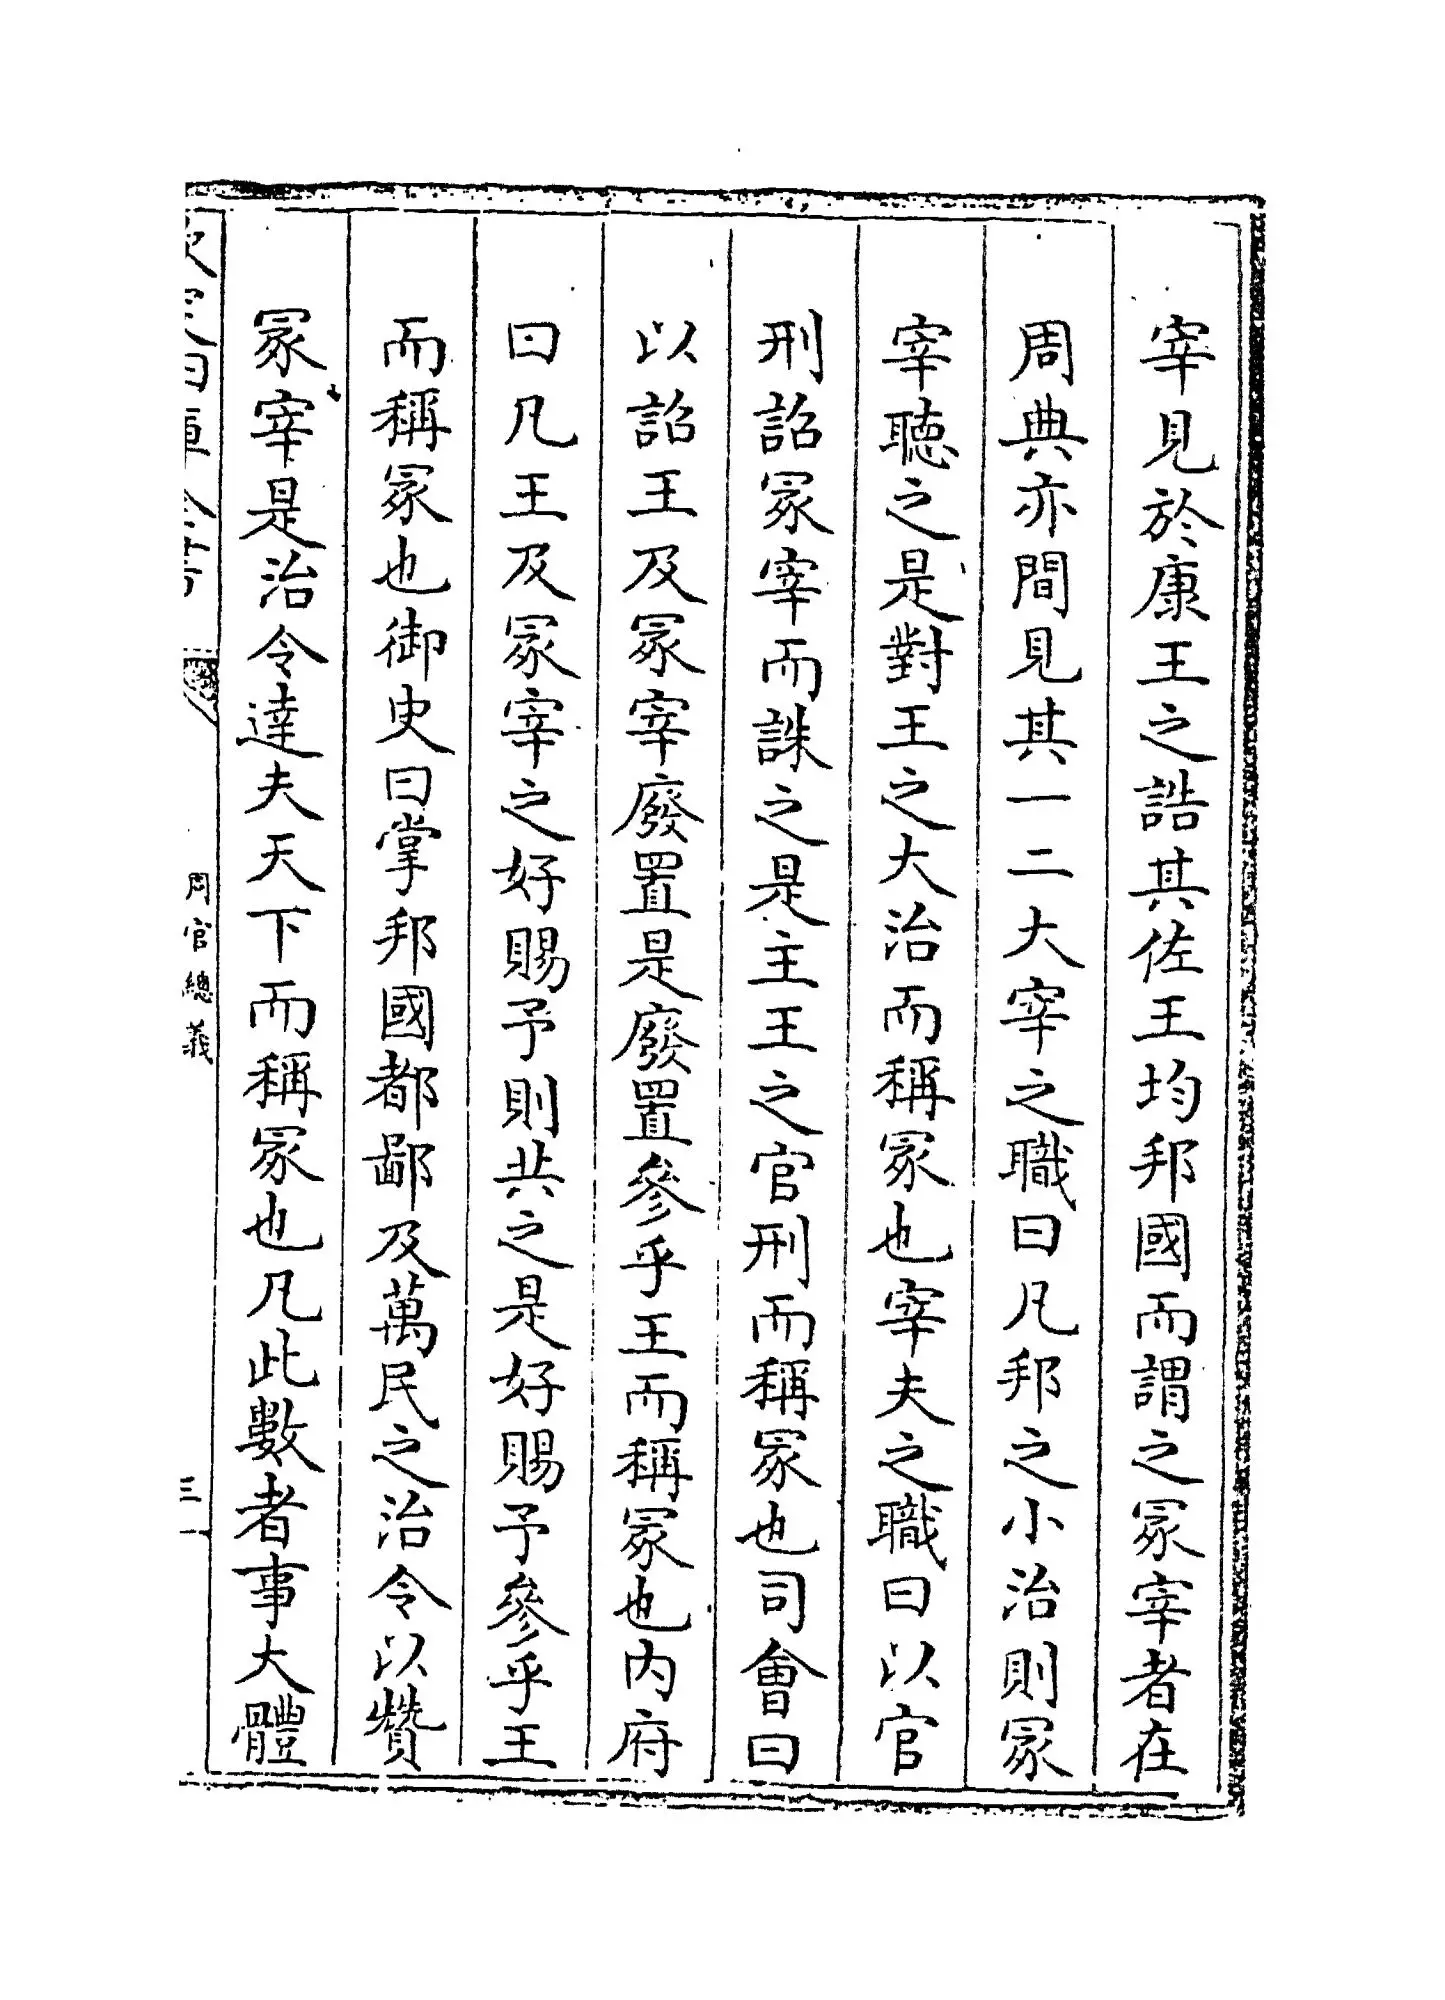 宰見於康王之誥其佐王均邦國而謂之冢宰者在
周典亦間見其一二大宰之職曰凡邦之小治則冢
宰聽之是對王之大治而稱冢也宰夫之職曰以官
刑詔冢宰而誅之是主王之官刑而稱冢也司會曰
以詔王及冢宰廢置是廢置參乎王而稱冢也内府
曰凡王及冢宰之好賜予則共之是好賜予參乎王
而稱冢也御史曰掌邦國都鄙及萬民之治令以贊
冢宰是治令達夫天下而稱冢也凡此數者事大體
欽定四庫全書
周官總義
三